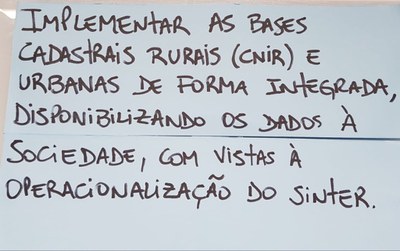 IMPLEMENTAR AS BASES
CADASTRAIS RURAIS (CNIR) E
URBANAS DE FORMA INTEGRADA,
DISPONIBILIZANDO OS DADOS À
SOCIEDADE, COM VISTAS À
OPERACIONALIZAÇÃO DO SINTER.